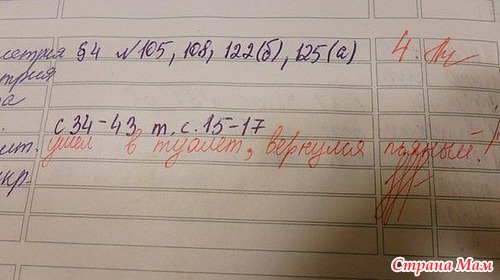 метрия §4 №105, 108, 122(б), 125(а) 4.
трия
а
с 34-43 т. с. 15-17
ит. ушел в туалет, вернулся пьяный!
кр.
Страна Мам